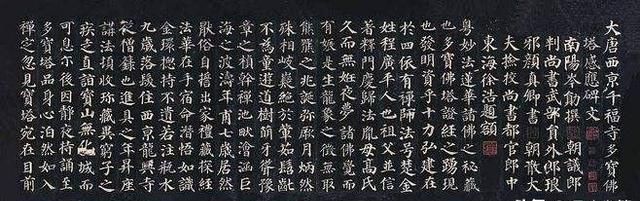 大唐西京千福寺多寶佛
塔感應碑文
南陽岑勛撰 朝議郎
判尚書武部員外郎琅
邪顏真卿書 朝散大
夫撿校尚書都官郎中
東海徐浩題額
粵妙法蓮華諸佛之秘藏
也多寶佛塔證經之踴現
也發明資乎十力弘建在
於四依有禪師法號楚金
姓程廣平人也祖父並信
著釋門慶歸法胤母高氏
久而無妊夜夢諸佛覺而
有娠是生龍象之徵無取
熊羆之兆誕彌厥月炳然
殊相岐嶷絕於葷茹髫齔
不為童遊道樹萌牙聳豫
章之楨幹禪池畎澮涵巨
海之波濤年甫七歲居然
猒俗自誓出家禮藏探經
法華在手宿命潛悟如識
金環總持不遺若注瓶水
九歲落髮住西京龍興寺
從僧籙也進具之年昇座
講法頓收珍藏異窮子之
疾走直詣寶山無化城而
可息尒後因靜夜持誦至
多寶塔品身心泊然如入
禪定忽見寶塔宛在目前